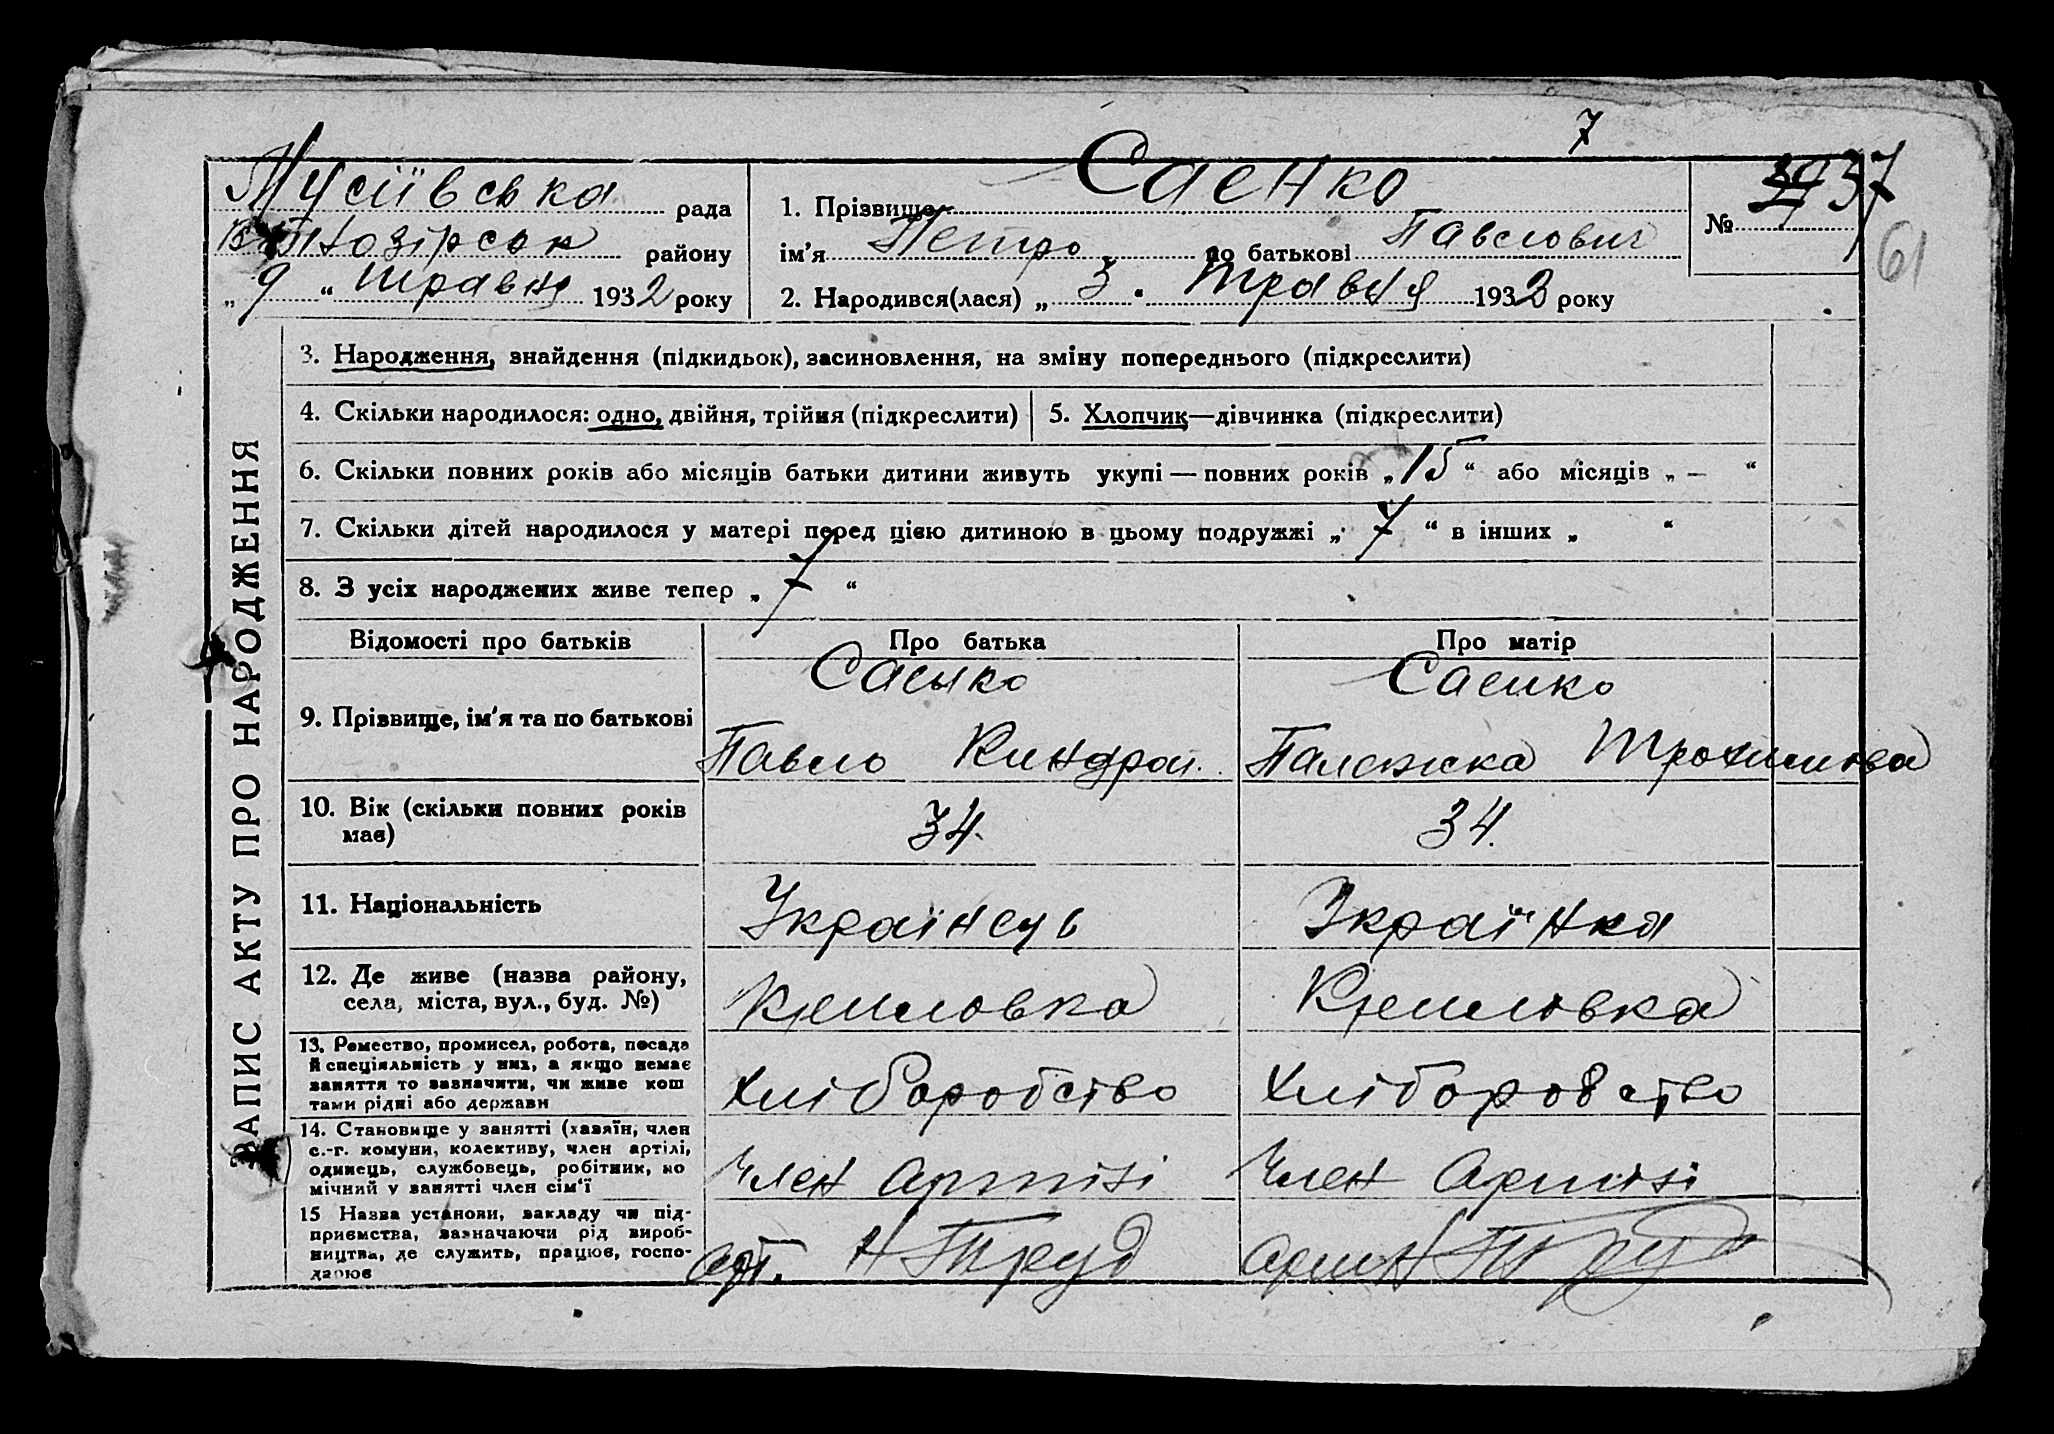 7
Мусіївська рада
Вбнозірськ району
„ 9 “ травня 1932 року
1. Прізвище Саєнко
ім’я Петро по батькові Павлович
2. Народився(лася) „ 3 “ травня 1932 року
№ 37
61
ЗАПИС АКТУ ПРО НАРОДЖЕННЯ
3. Народження, знайдення (підкидьок), засиновлення, на зміну попереднього (підкреслити)
4. Скільки народилося: одно, двійня, трійня (підкреслити)
5. Хлопчик—дівчинка (підкреслити)
6. Скільки повних років або місяців батьки дитини живуть укупі — повних років „ 15 “ або місяців „ — “
7. Скільки дітей народилося у матері перед цією дитиною в цьому подружжі „ 7 “ в інших „ “
8. З усіх народжених живе тепер „ 7 “
Відомості про батьків Про батька Про матір
9. Прізвище, ім’я та по батькові
Саєнко
Павло Киндрат.
Саенко
Палажка Трохимова
10. Вік (скільки повних років
має)
34.
34.
11. Національність
Українець
Українка
12. Де живе (назва району,
села, міста, вул., буд. №)
13. Ремество, промисел, робота, посада
й спеціяльність у них, а якщо немає
заняття то зазначити, чи живе кош
тами рідні або держави
Хліборобство
Хліборобство
14. Становище у занятті (хазяїн, член
с.-г. комуни, колективу, член артілі,
одинець, службовець, робітник, по
мічний у занятті член сім’ї
Член артілі
Член Артілі
15 Назва установи, закладу чи під-
приємства, зазначаючи рід вироб-
ництва, де служить, працює, госпо-
дарює
арт. Н Труд
арт Н Труд